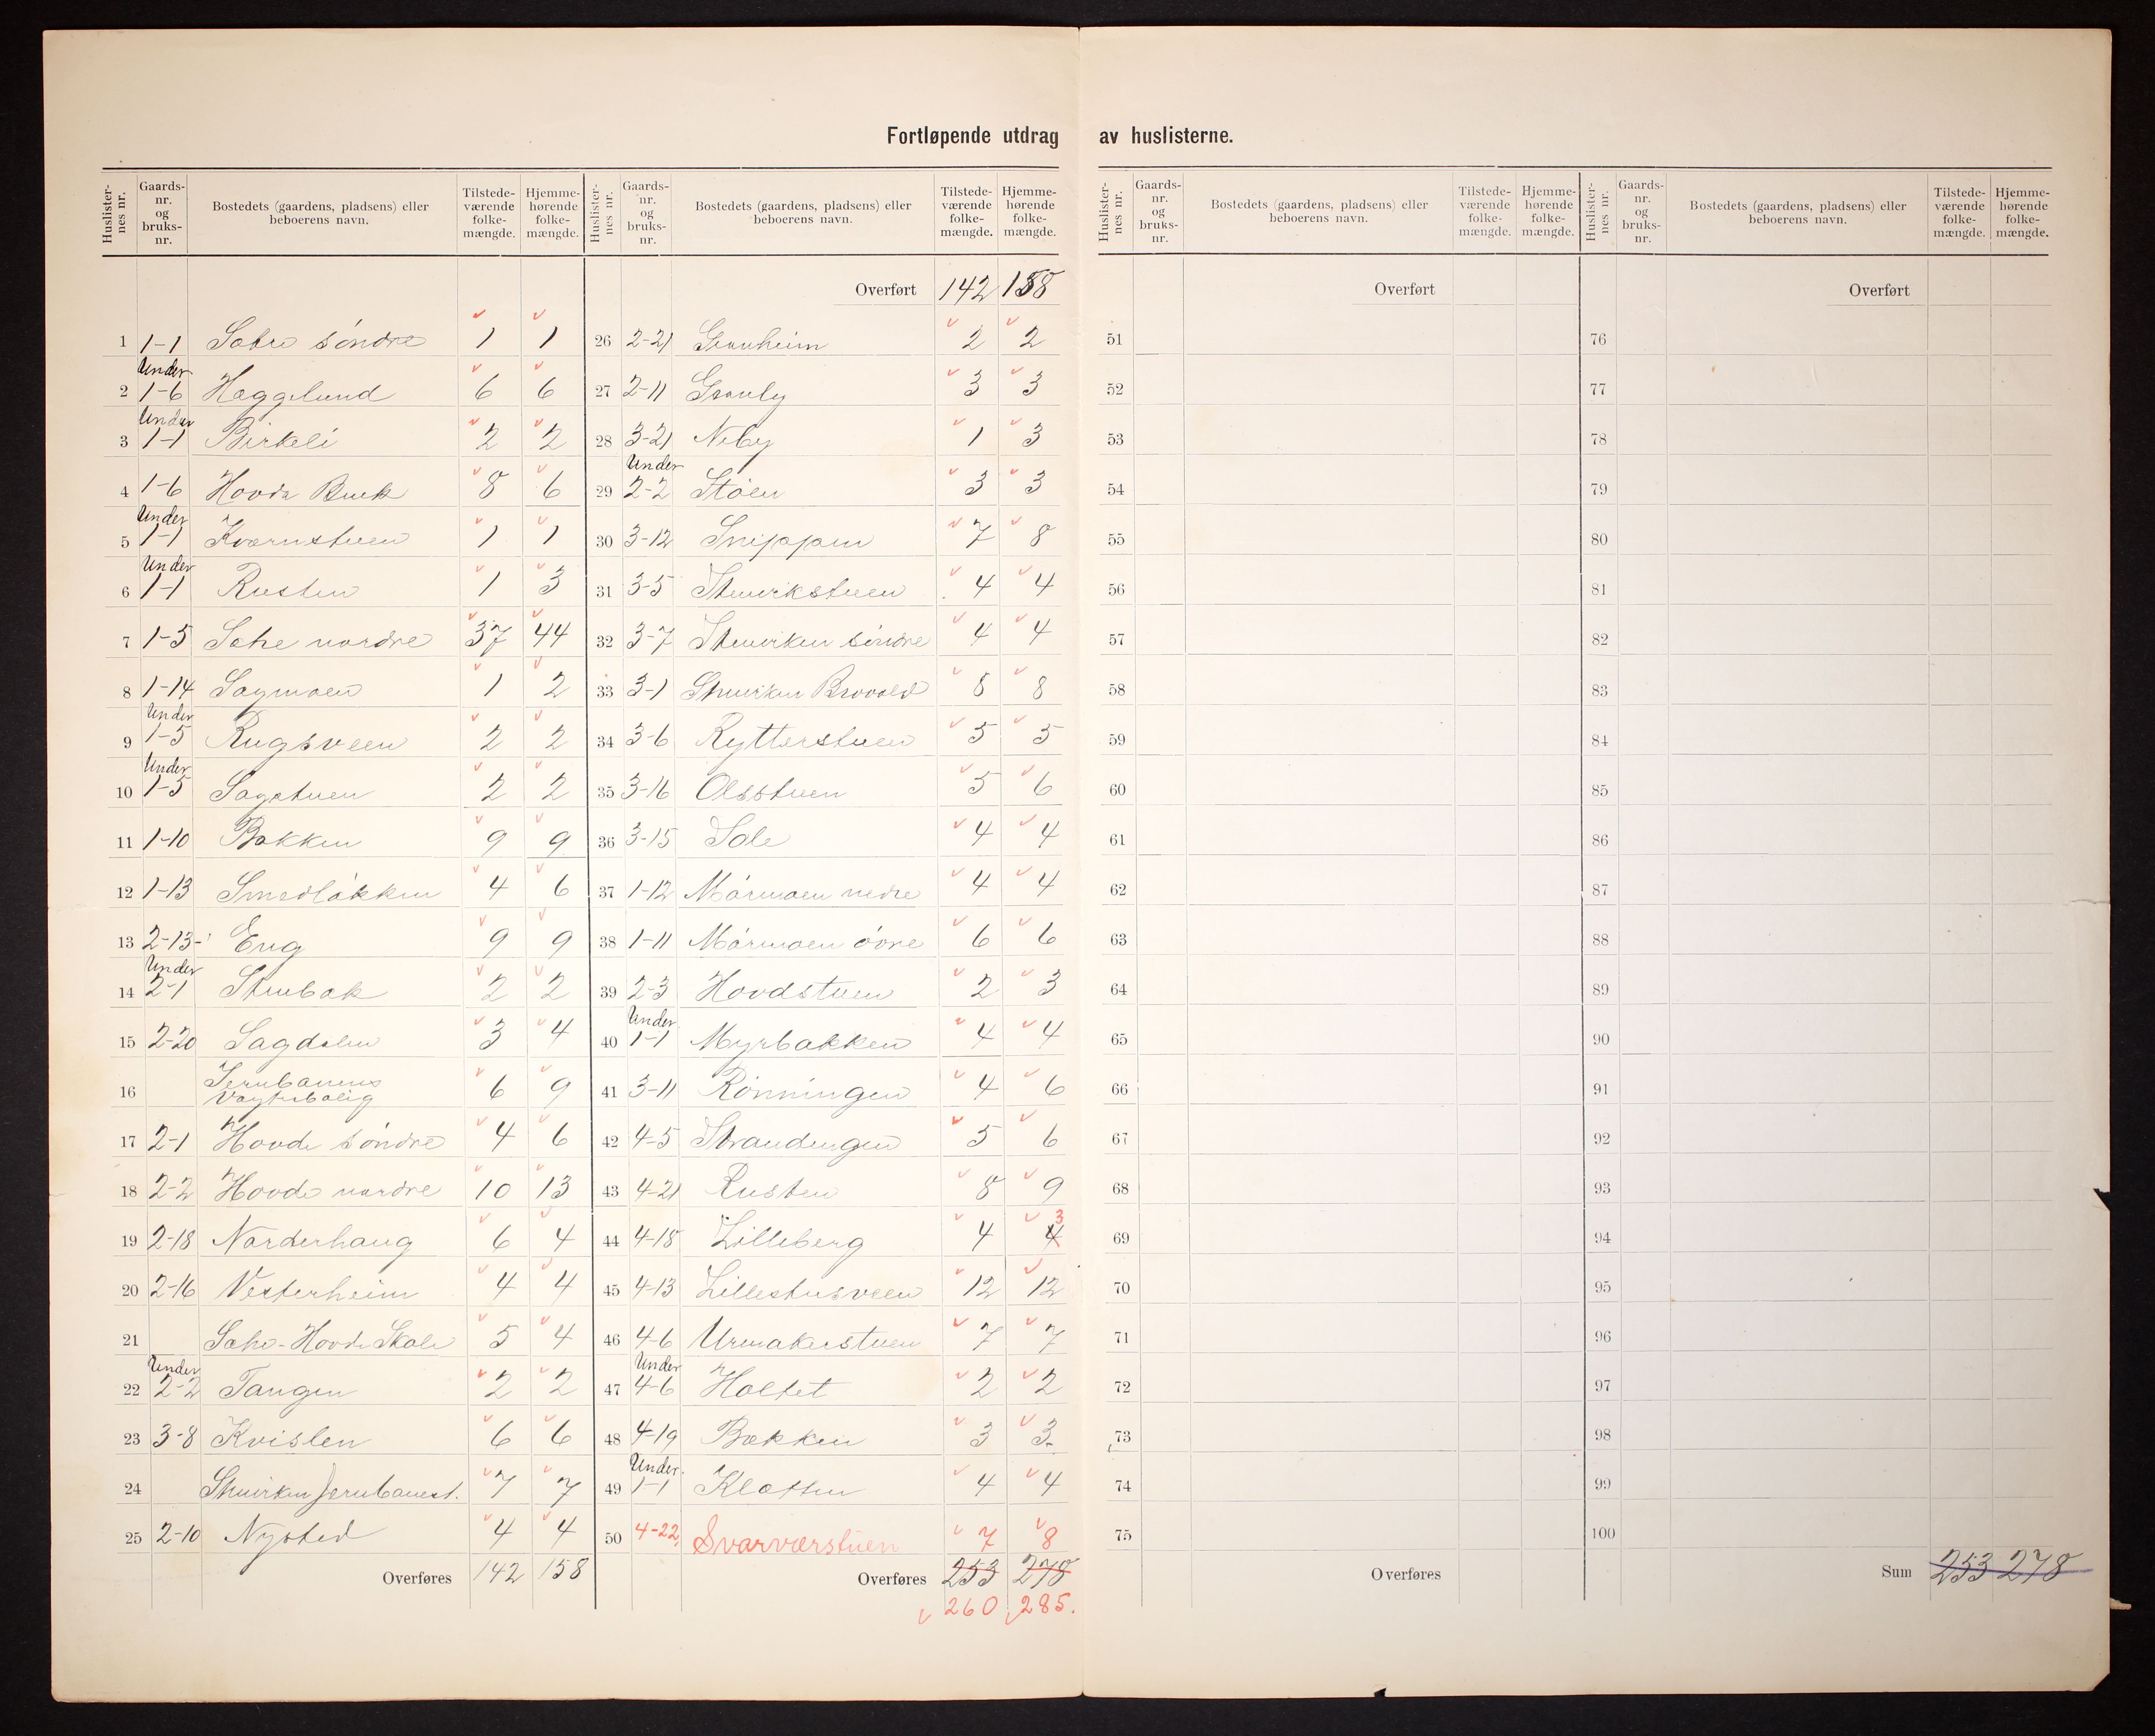 Fortløpende utdrag av huslisterne.
Huslister-nes nr. Gaards-nr. og bruks-nr. Bostedets (gaardens, pladsens) eller beboerens navn. Tilstede-værende folke-mængde. Hjemme-hørende folke-mængde. Huslister-nes nr. Gaards-nr. og bruks-nr. Bostedets (gaardens, pladsens) eller beboerens navn. Tilstede-værende folke-mængde. Hjemme-hørende folke-mængde.
Huslister-nes nr. Gaards-nr. og bruks-nr. Bostedets (gaardens, pladsens) eller beboerens navn. Tilstede-værende folke-mængde. Hjemme-hørende folke-mængde. Huslister-nes nr. Gaards-nr. og bruks-nr. Bostedets (gaardens, pladsens) eller beboerens navn. Tilstede-værende folke-mængde. Hjemme-hørende folke-mængde.
1 1-1 søndre 1 1
2 Under 1-6 Haggelund 6 6
3 Under 1-1 Birkeli 2 2
4 1-6 Hovde Bruk 8 6
5 Under 1-1 Kværnstuen 1 1
6 Under 1-1 Rusten 1 3
7 1-5 nordre 37 44
8 1-14 Sagmoen 1 2
9 Under 1-5 Rugsveen 2 2
10 Under 1-5 Sagstuen 2 2
11 1-10 Bakken 9 9
12 1-13 Smedløkken 4 6
13 2-13 Eng 9 9
14 Under 2-1 Stubak 2 2
15 2-20 Sagdalen 3 4
16 Jernbanens Vogterbolig 6 9
17 2-1 Hovde søndre 4 6
18 2-2 Hovde nordre 10 13
19 2-18 Norderhaug 6 4
20 2-16 Vesterheim 4 4
21 Hovde Skole 5 4
22 Under 2-2 Tangen 2 2
23 3-8 Kvislen 6 6
24 Stuvirken Jernbanest. 7 7
25 2-10 Nysted 4 4
Overføres 142 158
Overført 142 158
26 2-21 Granheim 2 2
27 2-11 Granly 3 3
28 3-21 Neby 1 3
29 Under 2-2 Støen 3 3
30 3-12 Snippen 7 8
31 3-5 Stuvirkstuen 4 4
32 3-7 Stuvirken søndre 4 4
33 3-1 Stuvirken Brovold 8 8
34 3-6 Rytterstuen 5 5
35 3-16 Olsstuen 5 6
36 3-15 Sole 4 4
37 1-12 Mørmoen nedre 4 4
38 1-11 Mørmoen øvre 6 6
39 2-3 Hovdstuen 2 3
40 Under 1-1 Myrbakken 4 4
41 3-11 Rønningen 4 6
42 4-5 Strandengen 5 6
43 4-21 Rusten 8 9
44 4-18 Lilleberg 4 4 3
45 4-13 Lillestusveen 12 12
46 4-6 Urmakerstuen 7 7
47 Under 4-6 Holtet 2 2
48 4-19 Bakken 3 3
49 Under 1-1 Kletten 4 4
50 4-22 Svarværstuen 7 8
Overføres 253 278
260 285.
Overført
51
52
53
54
55
56
57
58
59
60
61
62
63
64
65
66
67
68
69
70
71
72
73
74
75
Overføres
Overført
76
77
78
79
80
81
82
83
84
85
86
87
88
89
90
91
92
93
94
95
96
97
98
99
100
Sum 253 278